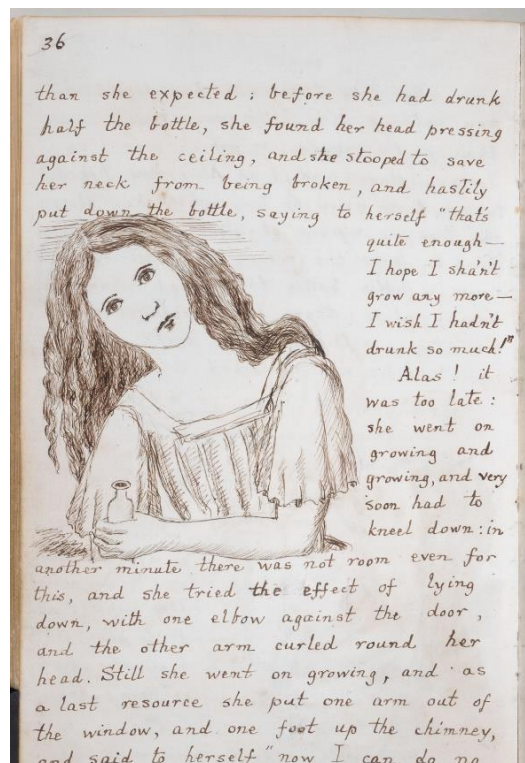 36
than she expected : before she had drunk
half the bottle, she found her head pressing
against the ceiling, and she stooped to save
her neck from being broken, and hastily
put down the bottle, saying to herself "that's
quite enough—
I hope I sha'n't
grow any more—
I wish I hadn't
drunk so much!"
Alas! it
was too late :
she went on
growing and
growing, and very
soon had to
kneel down : in
another minute there was not room even for
this, and she tried the effect of lying
down, with one elbow against the door,
and the other arm curled round her
head. Still she went on growing, and as
a last resource she put one arm out of
the window, and one foot up the chimney,
and said to herself "now I can do no